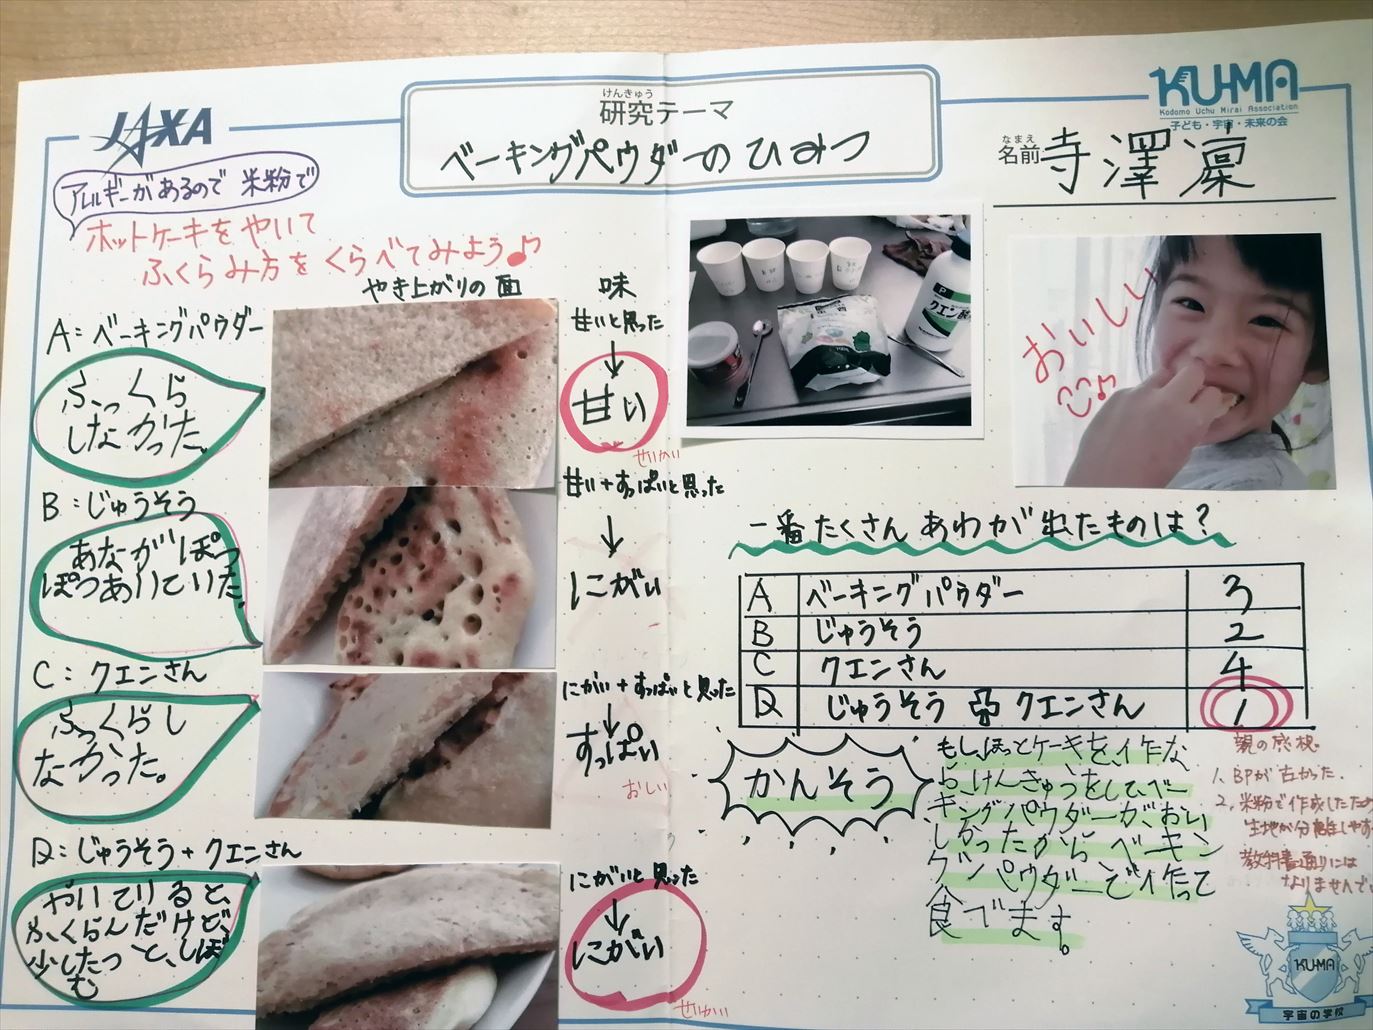 JAXA
けんきゅう
研究テーマ
ベーキングパウダーのひみつ
KU-MA
Kodomo Uchu Mirai Association
子ども・宇宙・未来の会
なまえ
名前 寺澤凜
アレルギーがあるので 米粉で
ホットケーキをやいて
ふくらみ方をくらべてみよう♪
やき上がりの面
味
A:ベーキングパウダー
ふっくら
しなかった。
甘いと思った
↓
甘い
せいかい
B:じゅうそう
あながぽつ
ぽつあいていた。
甘い+すっぱいと思った
↓
にがい
C:クエンさん
ふっくらし
なかった。
にがい+すっぱいと思った
↓
すっぱい
おしい
D:じゅうそう+クエンさん
やいていると、
ふくらんだけど、
少したつと、しぼ
む
にがいと思った
↓
にがい
せいかい
クエン酸
おいしい
♪
一番たくさんあわが出たものは?
A ベーキングパウダー 3
B じゅうそう 2
C クエンさん 4
D じゅうそう + クエンさん 1
かんそう
もし、ほっとケーキを、作るな
ら、けんきゅうをして、ベー
キングパウダーが、おい
しかったから ベーキン
グパウダーで作って
食でます。
親の感想
1、BPが古かった.
2、米粉で作成したため
生地が分離しやす
教科書通りには
なりませんで
KU-MA
宇宙の学校